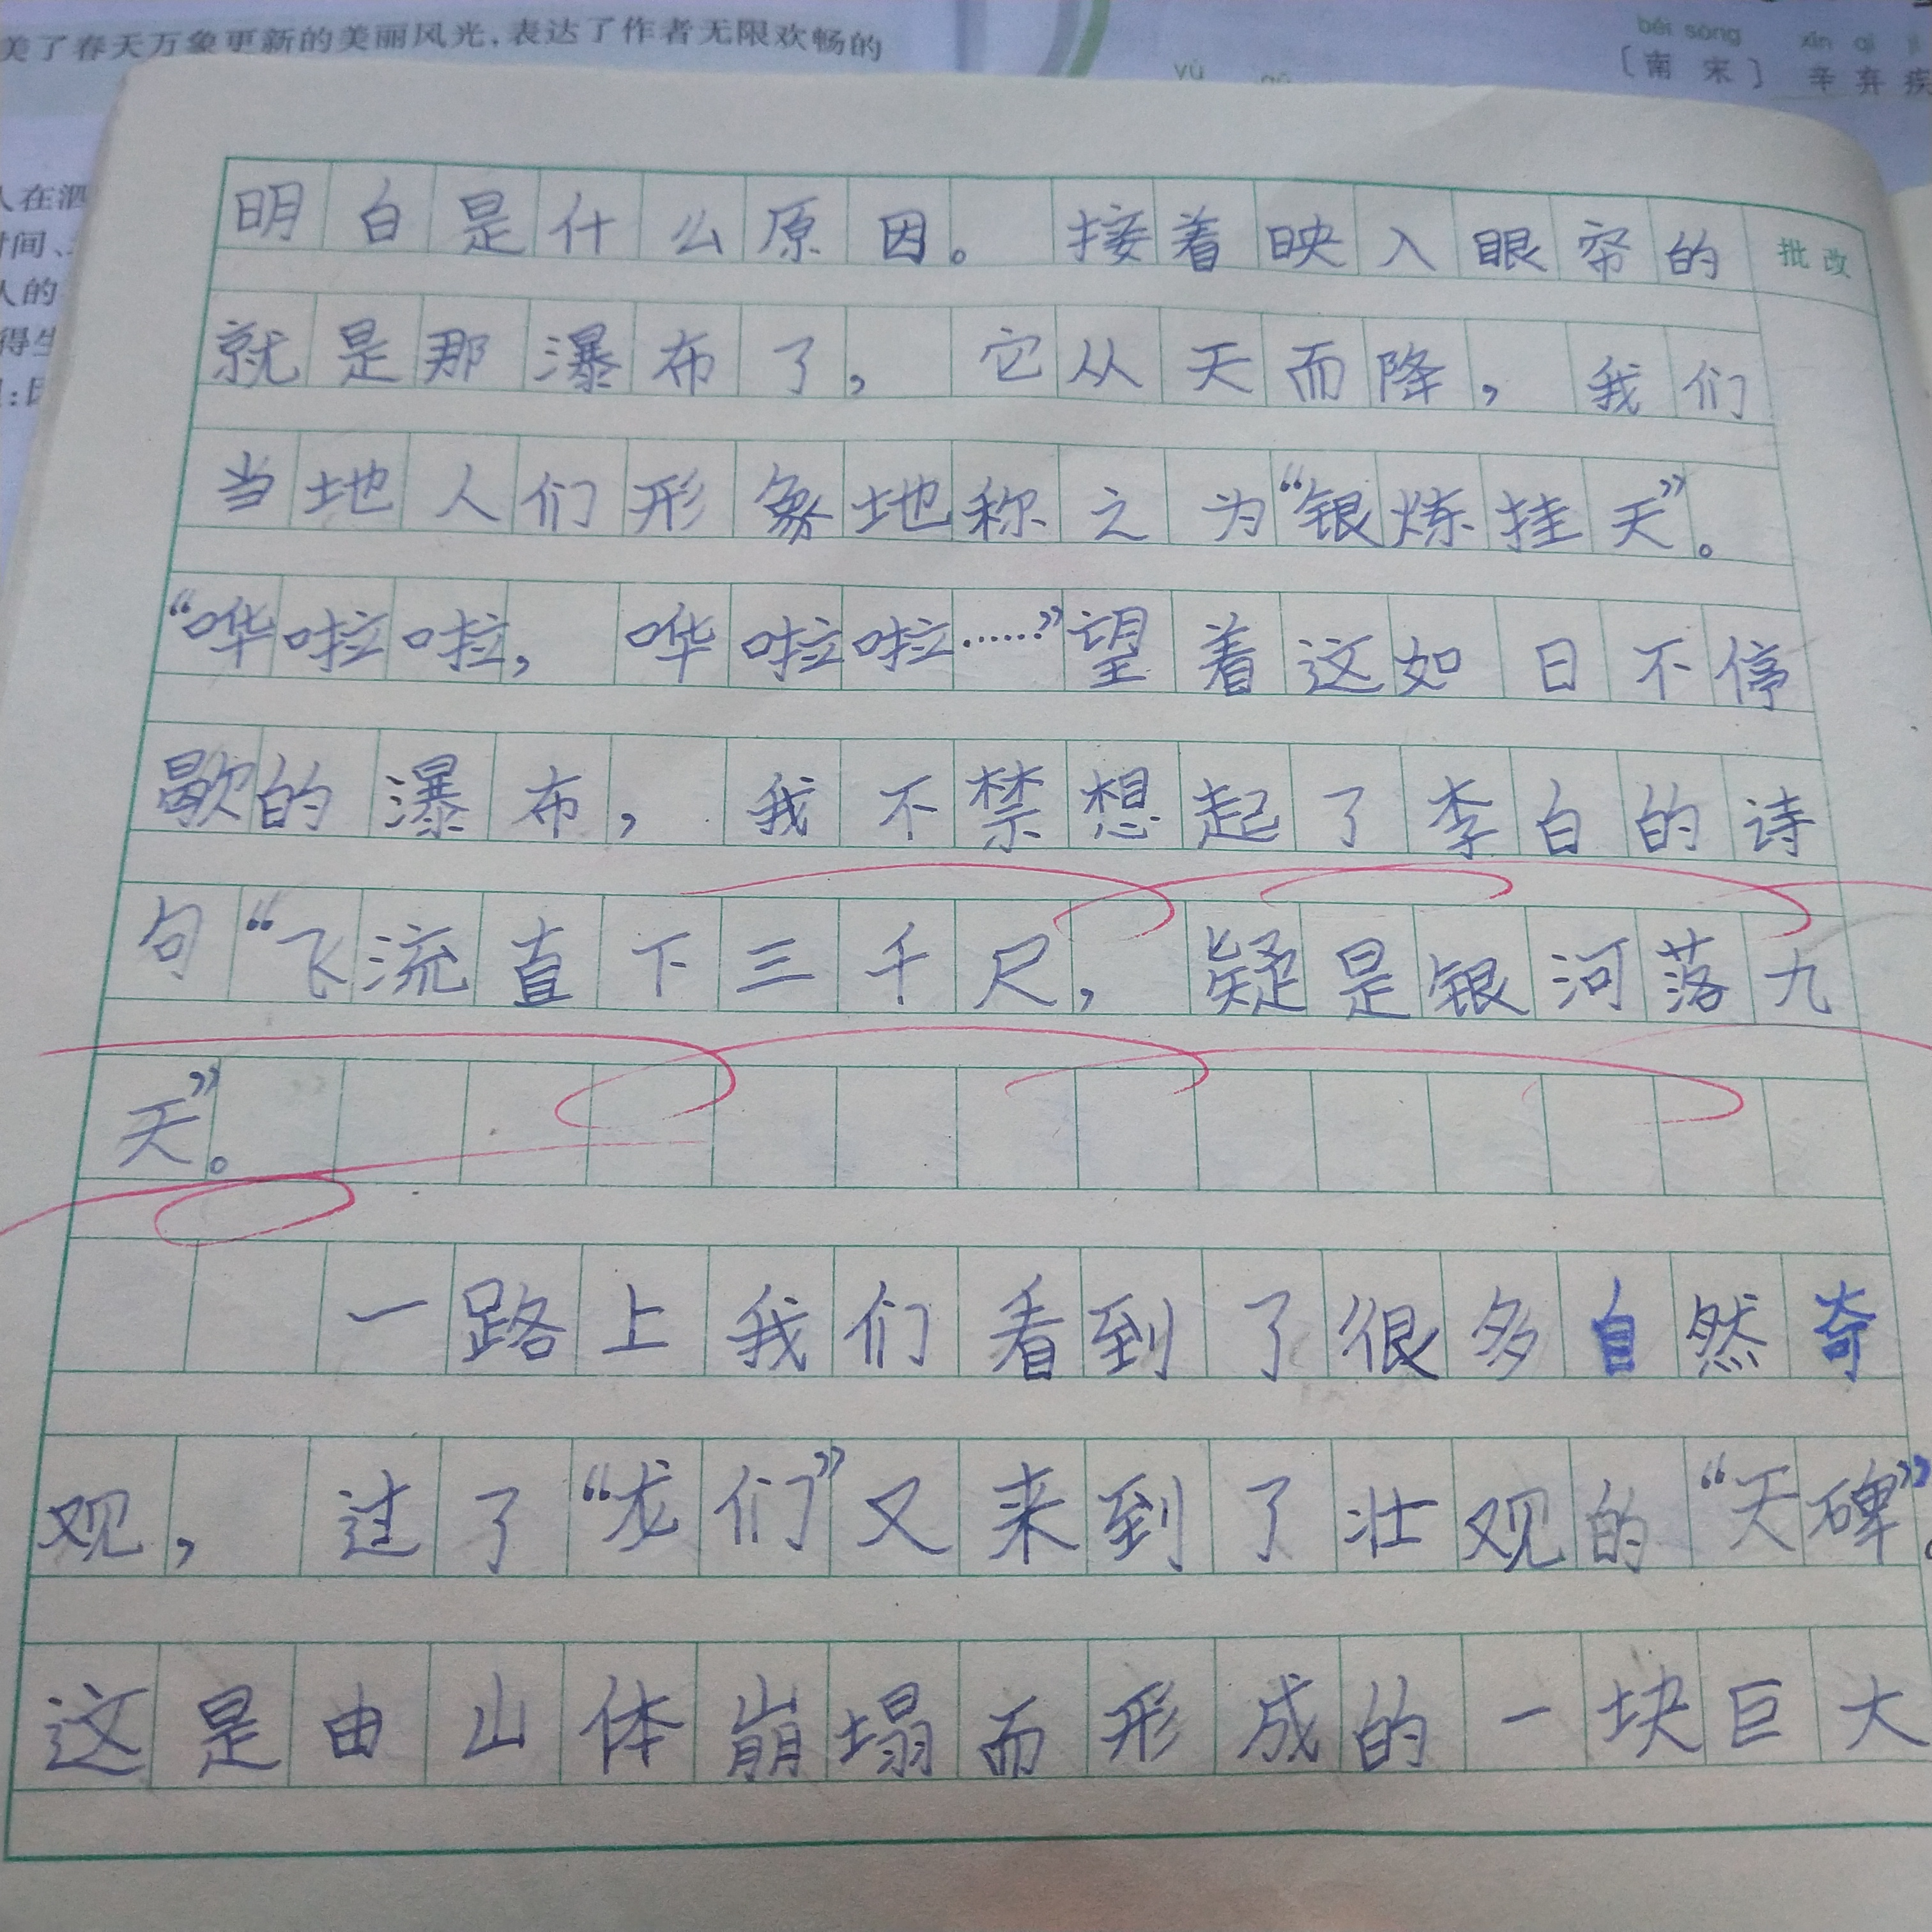 美了春天万象更新的美丽风光,表达了作者无限欢畅的
běi sòng xīn qì
〔南宋〕辛弃疾
人在泗
时间、
人的
得生
明白是什么原因。接着映入眼帘的
批改
就是那瀑布了，它从天而降，我们
当地人们形象地称之为“银炼挂天”。
“哗啦啦，哗啦啦……”望着这如日不停
歇的瀑布，我不禁想起了李白的诗
句“飞流直下三千尺，疑是银河落九
天”。
一路上我们看到了很多自然奇
观，过了“龙们”又来到了壮观的“天碑”。
这是由山体崩塌而形成的一块巨大